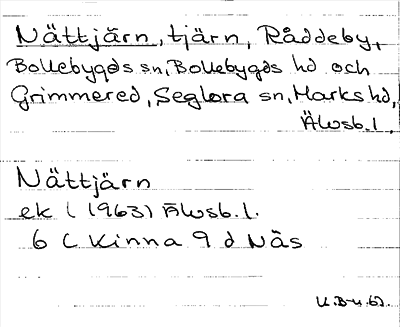 Nättjärn, tjärn, Råddeby,
Bollebygds sn, Bollebygds hd och
Grimmered, Seglora sn, Marks hd,
Älvsb. l.
Nättjärn
ek l (1963) Älvsb. l.
6 C Kinna 9 d Näs